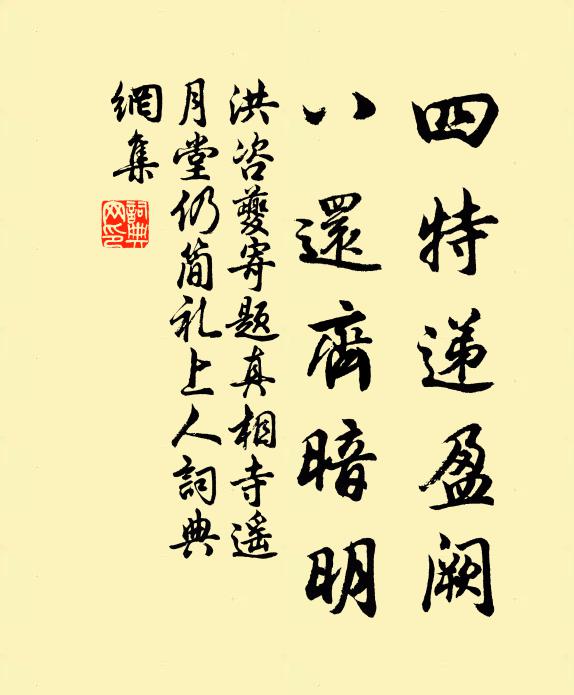 四特递盈阙
八還齊暗明
洪咨夔寄题真相寺遥
月堂仍简礼上人詞典
網集
詞典網印